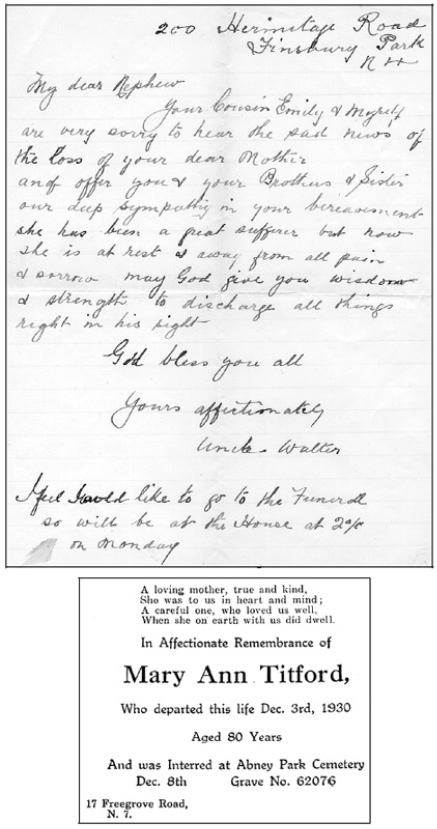 200 Hermitage Road
Finsbury Park
N 4
My dear Nephew
Your Cousin Emily & Myself
are very sorry to hear the sad news of
the loss of your dear Mother
and offer you & your Brothers & Sister
our deep sympathy in your bereavement
she has been a great sufferer but now
she is at rest & away from all pain
& sorrow may God give you wisdom
& strength to discharge all things
right in his sight
God bless you all
Yours affectionately
Uncle Walter
I feel I would like to go to the Funeral
so will be at the House at
on Monday
A loving mother, true and kind,
She was to us in heart and mind;
A careful one, who loved us well,
When she on earth with us did dwell.
In Affectionate Remembrance of
Mary Ann Titford,
Who departed this life Dec. 3rd, 1930
Aged 80 Years
And was Interred at Abney Park Cemetery
Dec. 8th Grave No. 62076
17 Freegrove Road,
N. 7.